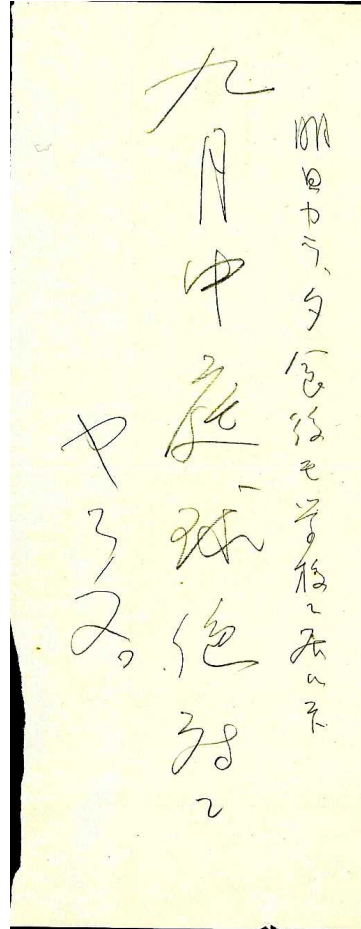 明日カラ、夕食後モ学校ニ居ル
九月中庭球絶対ニ
ヤラヌ。